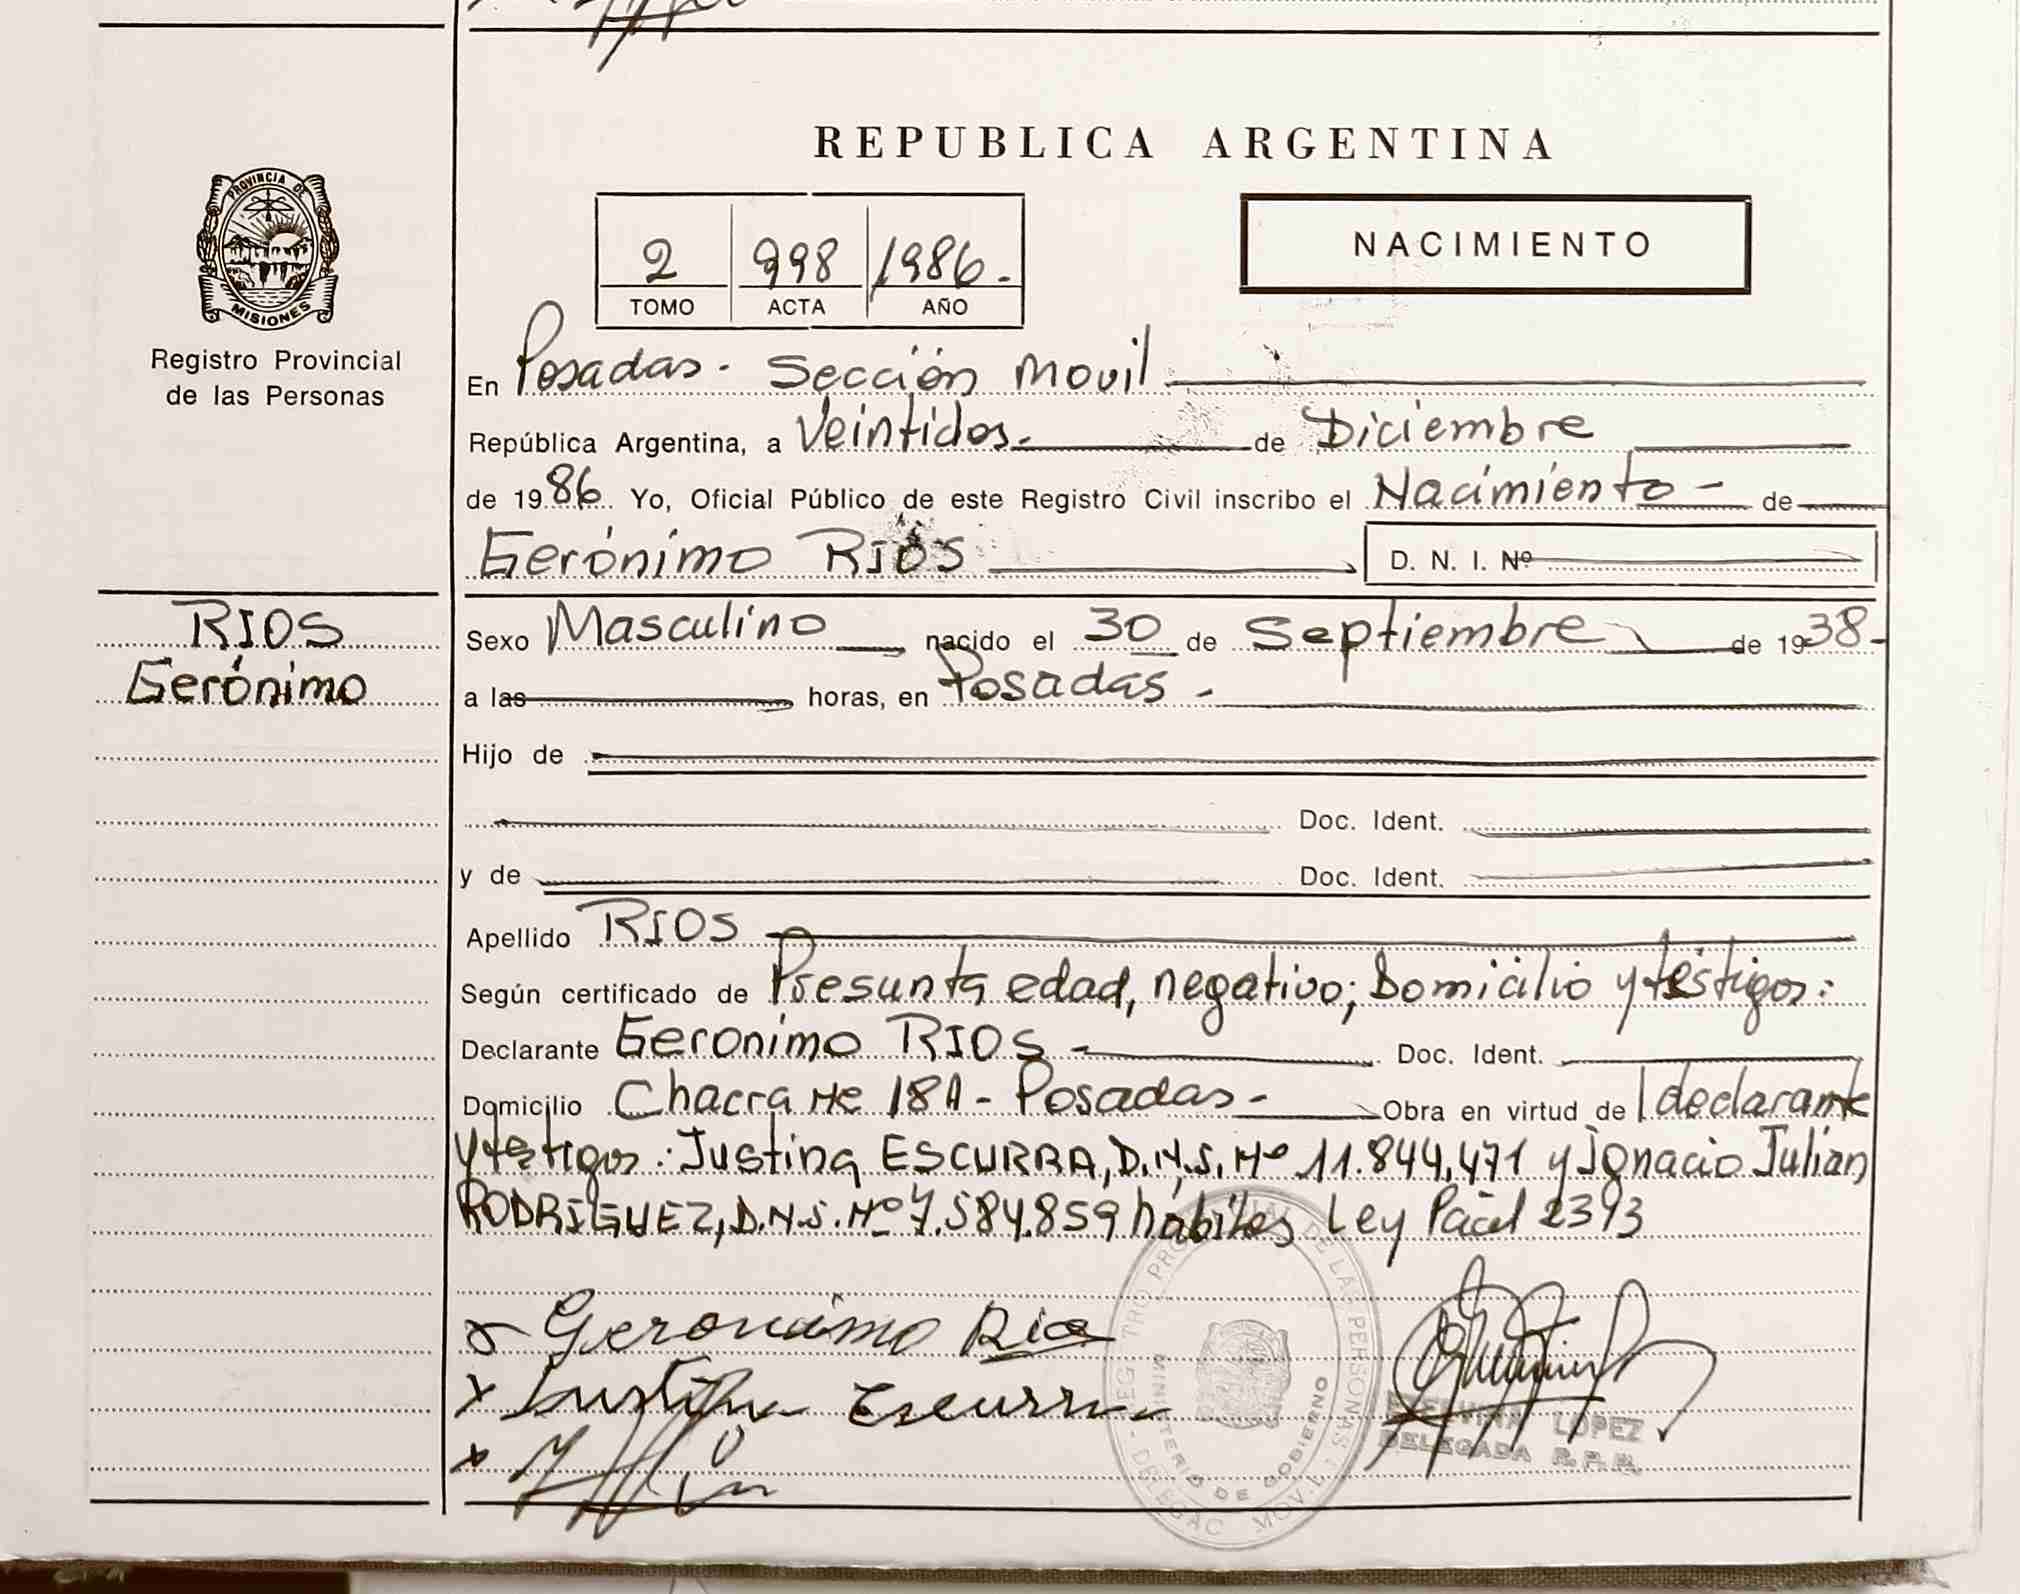 REPUBLICA ARGENTINA
PROVINCIA DE
MISIONES
Registro Provincial
de las Personas
2 998 1986.
TOMO ACTA AÑO
NACIMIENTO
En Posadas - Sección Movil
República Argentina, a Veintidos.- de Diciembre
de 1986. Yo, Oficial Público de este Registro Civil inscribo el Nacimiento - de
Gerónimo RIOS D. N. I. Nº
RIOS
Gerónimo
Sexo Masculino nacido el 30 de Septiembre de 1938-
a las horas, en Posadas -
Hijo de
Doc. Ident.
y de Doc. Ident.
Apellido RIOS
Según certificado de Presunta edad, negativo; Domicilio y testigos:
Declarante Geronimo RIOS - Doc. Ident.
Domicilio Chacra Nº 18A - Posadas - Obra en virtud de l declarante
y testigos: Justina ESCURRA, D.N.I. Nº 11.844.471 y Ignacio Julian
RODRIGUEZ, D.N.I. Nº 7.584.859 hábiles Ley 2393
x Geronimo Rios
x Justina Escurra
x
REGISTRO PROVINCIAL DE LAS PERSONAS
MINISTERIO DE GOBIERNO
LOPEZ
DELEGADA R.P.P.